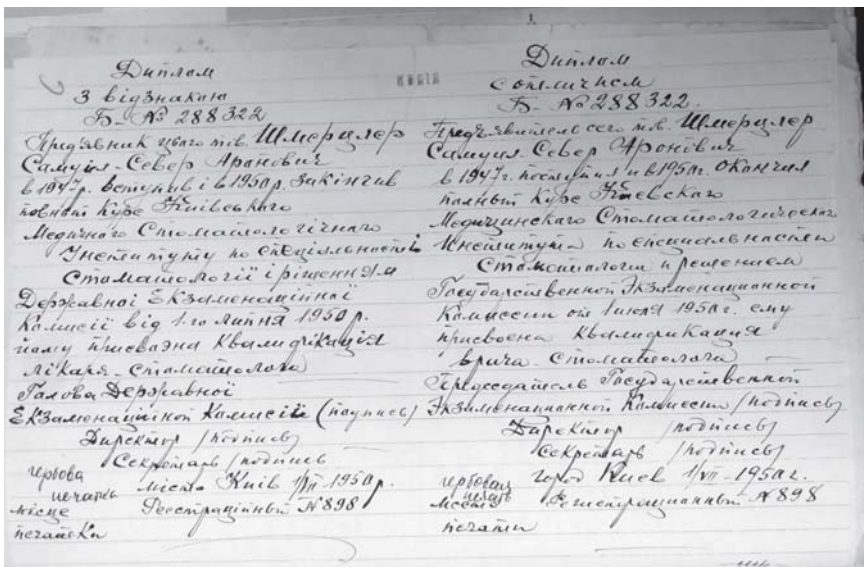 Диплом
З відзнакою
Б- № 288322
Пред'явник цього тов. Шмерцлер
Самуіл-Север Аронович
в 1947р. вступив і в 1950р. закінчив
повный Курс Київського
Медичного Стоматологічного
Інституту по спеціальності
Стоматології і рішенням
Державної Екзаменаційної
Комисії від 1-го липня 1950 р.
йому присвоэна Квалификація
лікаря-стоматолога
Голова Державної
Екзаменаційной Комисіі (подпись)
Директор /подпись/
Секретарь /подпись
гербова місто Київ 1/VII 1950р.
печать
місце Реестраційный N 898
печатки
Диплом
с отличием
Б- № 288322.
Предъявитель сего тов. Шмерцлер
Самуил-Север Аронович
в 1947г. поступил и в 1950г. окончил
полный Курс Киевского
Медицинского Стоматологического
Института по специальности
Стоматология и решением
Государственной Экзаменационной
Комиссии от 1 июля 1950г. ему
присвоена Квалификация
врача-стоматолога
Председатель Государственной
Экзаменационной Комиссии /подпись/
Директор /подпись/
Секретарь /подпись/
гербовая город Киев 1/VII-1950г.
печать
место Регистрационный N 898
печати